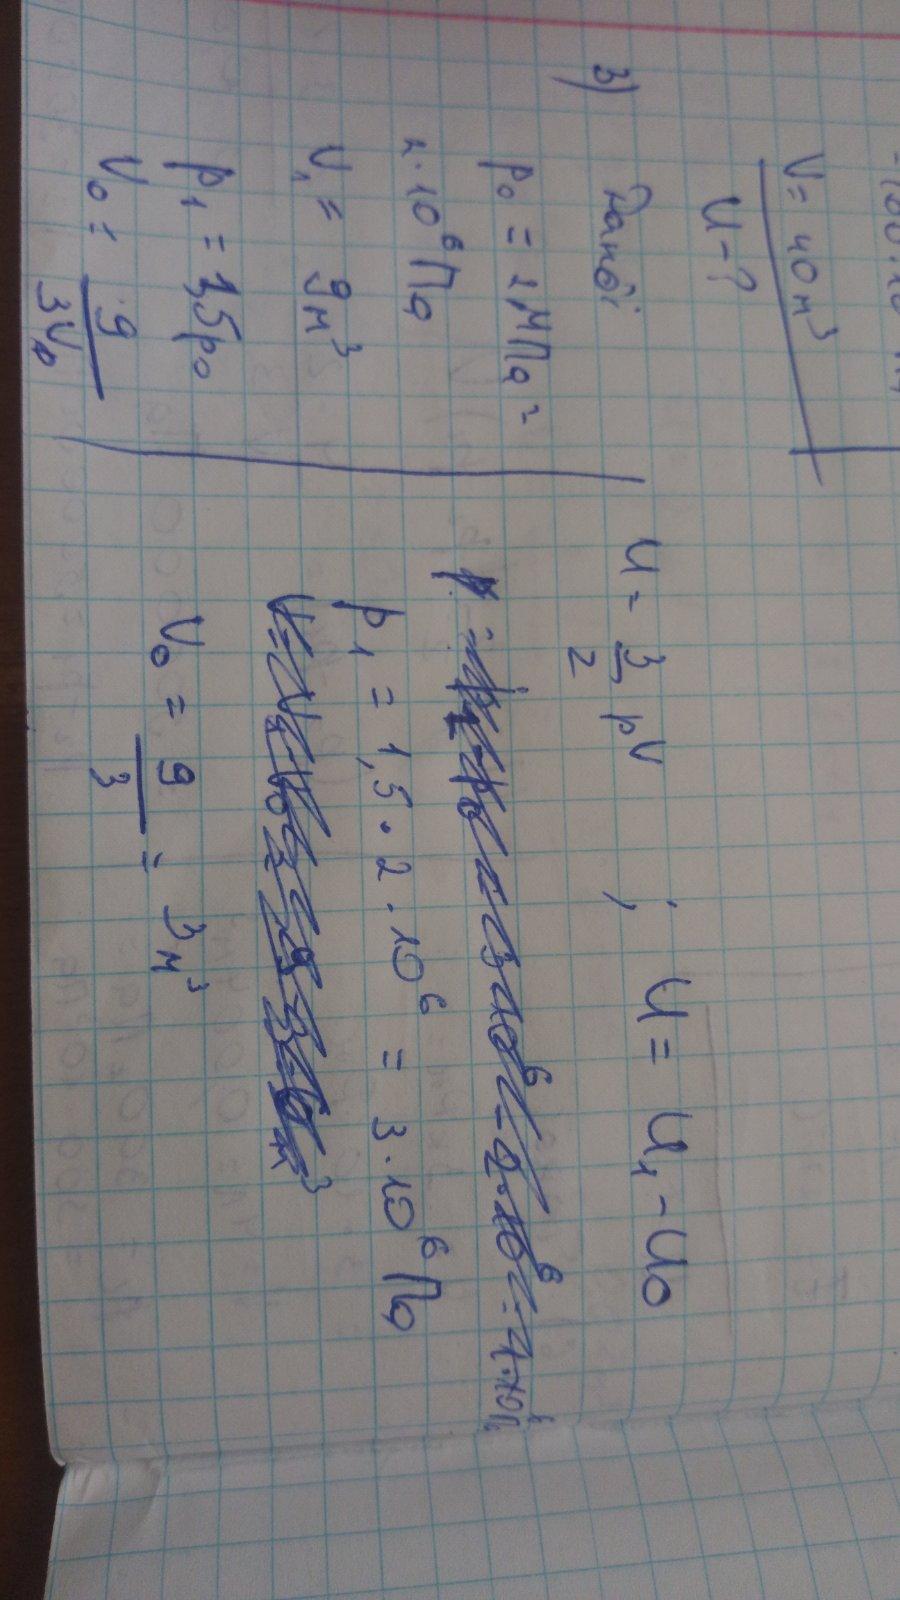 V = 40 м³
U - ?
3)
p₀ = 2 МПа =
2 · 10⁶ Па
V₁ = 9 м³
p₁ = 1,5 p₀
V₀ = 9
3V₀
U = 3/2 pV ; U = U₁ - U₀
p₁ = 1,5 · 2 · 10⁶ = 3 · 10⁶ Па
V₀ = 9/3 = 3 м³